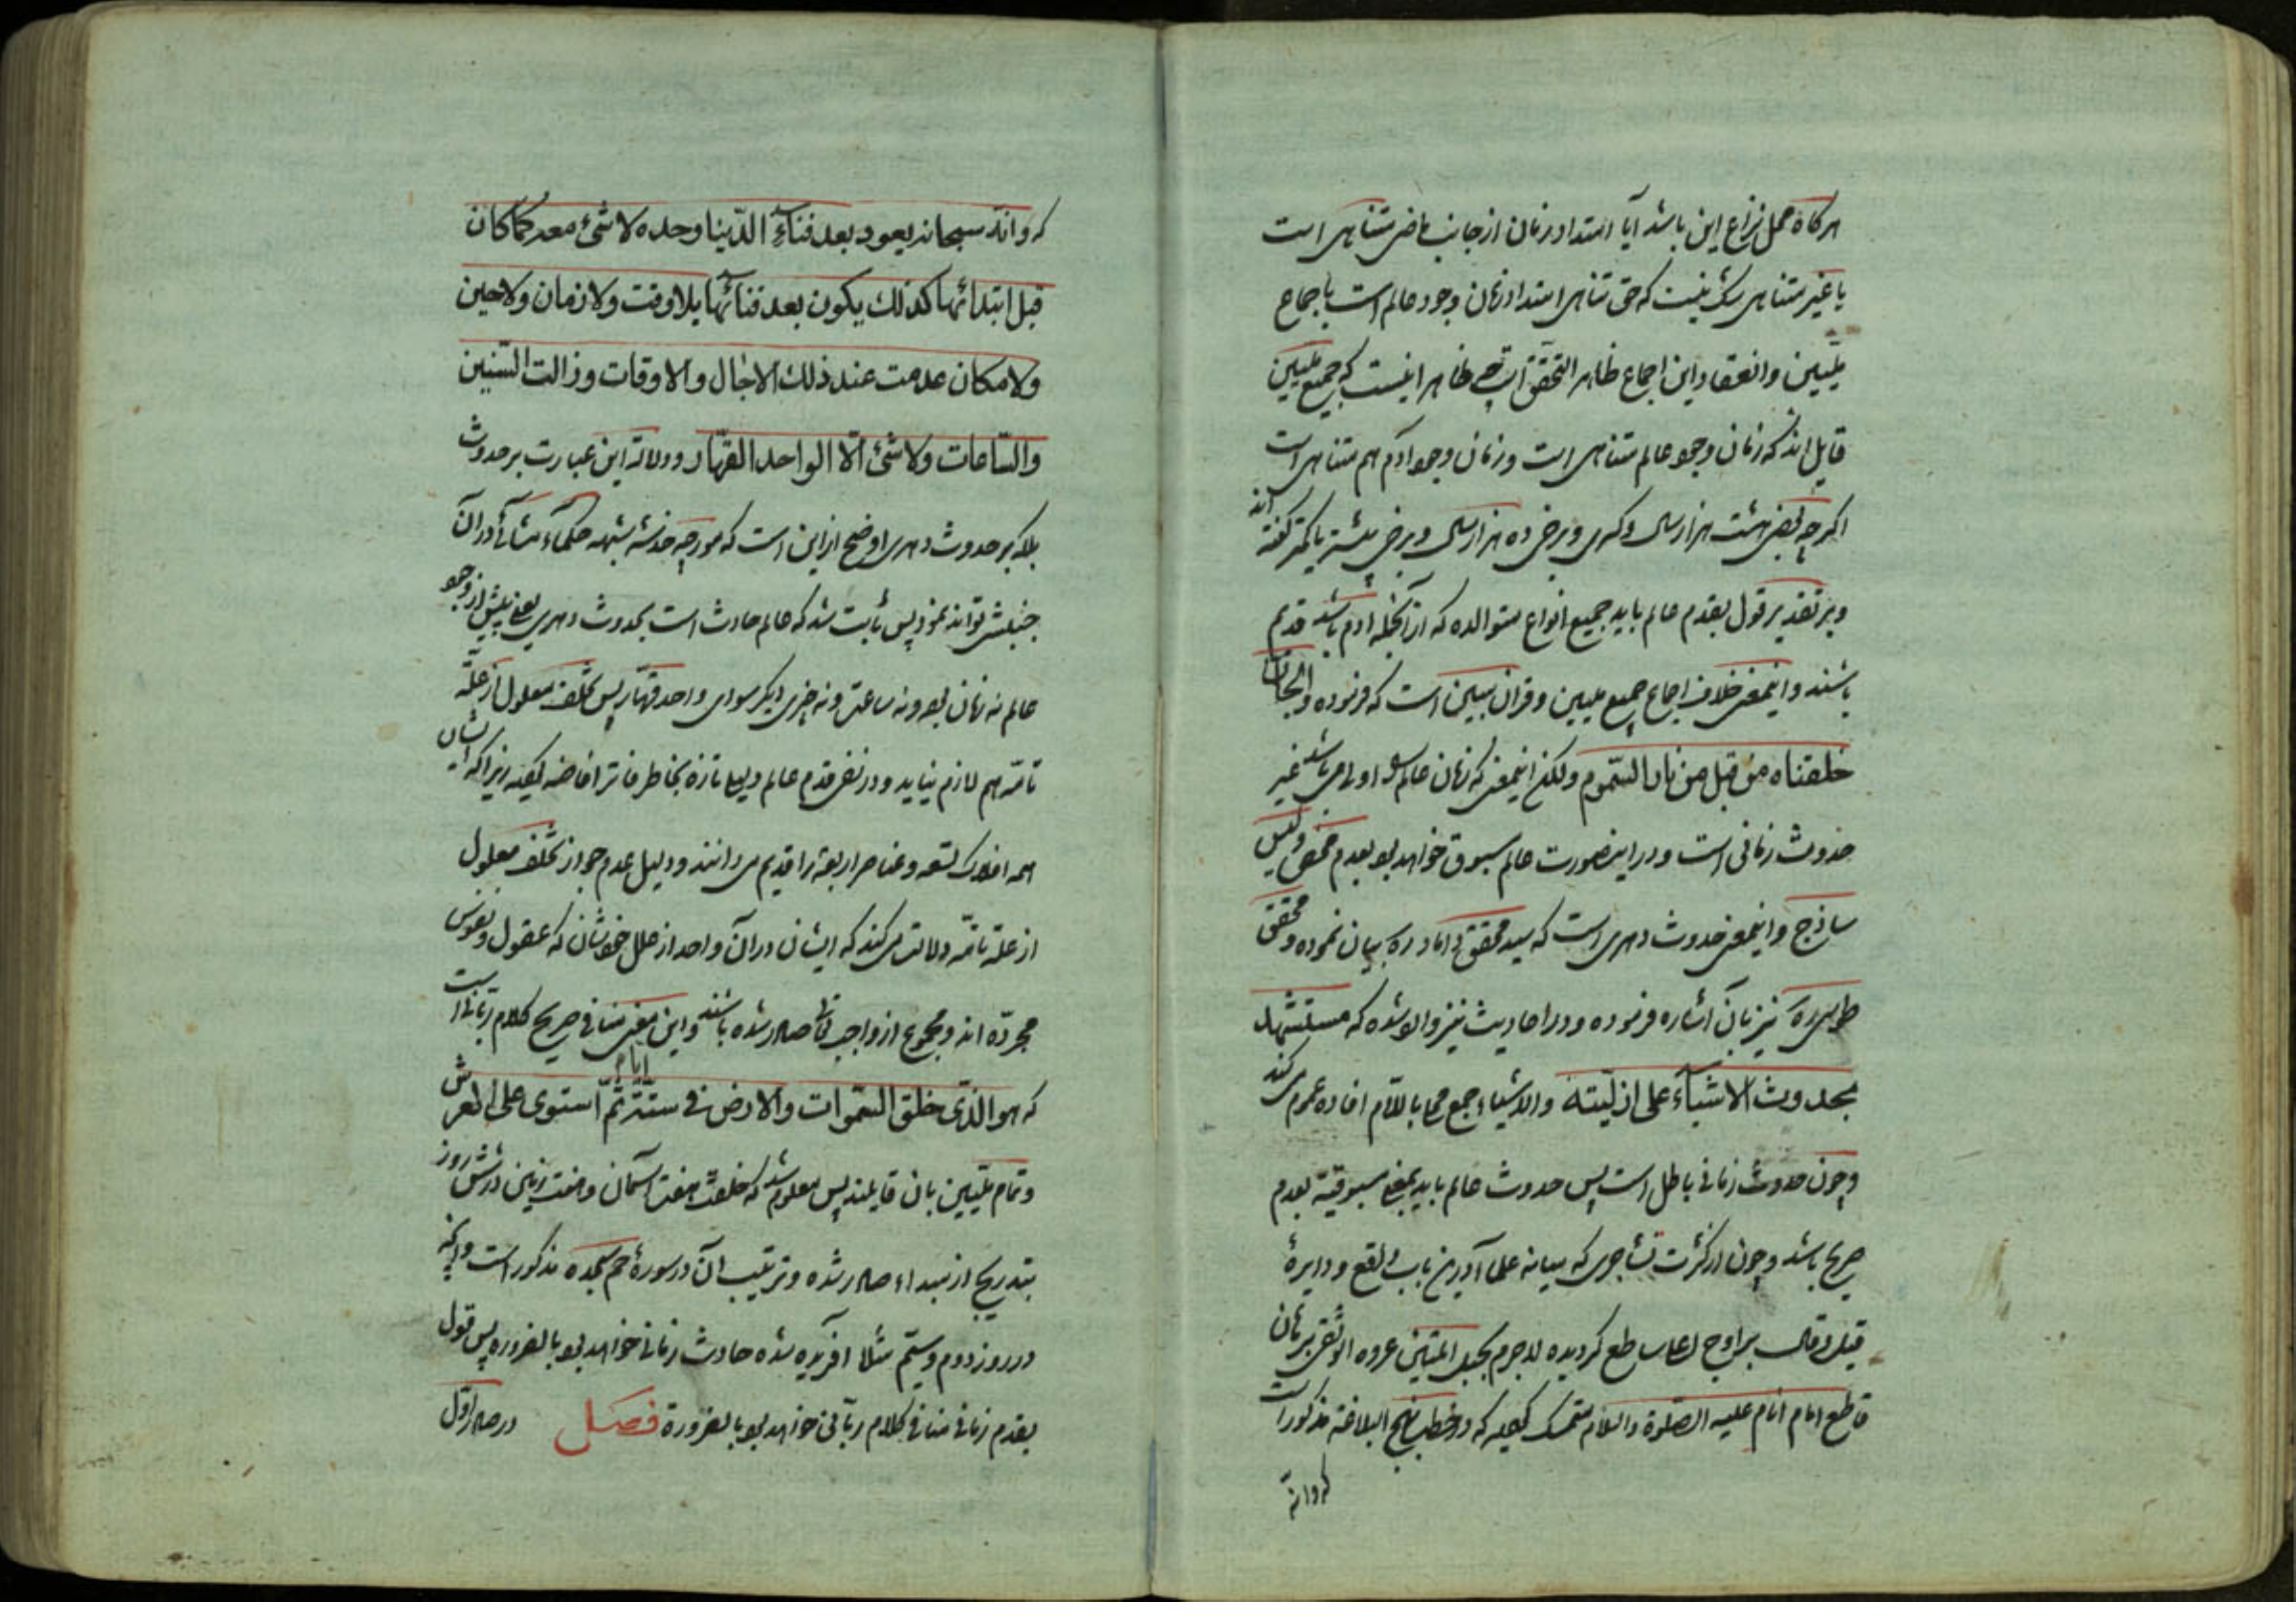 هرکاه محل نزاع این باشد آیا امتداد زمان از جانب ماضی متناهی است
یا غیر متناهی شک نیست که حق تناهی امتداد زمان وجود عالم است باجماع
ملیین وانعقاد این اجماع ظاهر التحقق است چه ظاهر اینست که جمیع ملیین
قایل اند که زمان وجود عالم متناهی است و زمان وجود آدم هم متناهی است
اکرچه بعضی هشت هزار سال وکسری وبرخی ده هزار سال وبرخی بیشتر یا کمتر کفته اند
وبر تقدیر قول بقدم عالم باید جمیع انواع متوالده که از آنجمله ادم باشد قدیم
باشند واینمعنی خلاف اجماع جمیع ملیین وقران مبین است که فرموده والجان
خلقناه من قبل من نار السموم ولکن اینمعنی که زمان عالم را اولی باشد غیر
حدوث زمانی است ودر اینصورت عالم مسبوق خواهد بود بعدم محض ولیس
ساذج واینمعنی حدوث دهری است که سید محقق داماد ره بیان نموده ومحقق
طوسی ره نیز بآن اشاره فرموده ودر احادیث نیز وارد شده که مستشهد
بحدوث الاشیآء علی ازلیّته والاشیاء جمع محلا باللام افاده عموم می کند
وچون حدوث زمانی باطل است پس حدوث عالم باید بمعنی مسبوقیة بعدم
صریح باشد وچون از کثرت تشاجری که میانه علما آدرین باب واقع ودایرهٔ
قیل وقال براوج اعلا ساطع کردیده لاجرم بحبل المتین عروه الوثقی برهان
قاطع امام انام علیه الصلوة والسلام متمسک کعید که در خطب نهج البلاغة مذکور است
که وانه
که وانّه سبحانه یعود بعد فناءِ الدّنیا وحده لا شیٔ معه کما کان
قبل ابتدائها کذلك یکون بعد فنائها بلا وقت ولا زمان ولا حین
ولا مکان عدمت عند ذلك الاجال والاوقات وزالت السّنین
والسّاعات ولا شیٔ الّا الواحد القهّار ودلالة این عبارت بر حدوث
بلکه بر حدوث دهری اوضح از این است که مورچه خدشه شبهه حکماء مشائی در آن
جنبش تواند نمود پس ثابت شد که عالم حادث است بحدوث دهری یعنی پیش از وجود
عالم نه زمان بود ونه ساعتی ونه چیزی دیکر سوای واحد قهّار پس تخلف معلول از علّة
تامّه هم لازم نیاید ودر نفی قدم عالم دلیل تازه بخاطر فاتر افاضه زیرا که ایشان
همه افلاک تسعه وعناصر اربعة را قدیم می دانند ودلیل عدم جواز تخلف معلول
از علة تامّه دلالت می کند که ایشان در آن واحد از علل خودشان که عقول ونفوس
مجرّده اند ومجموع از واجب تعالی صادر شده باشند واین معنی منافی صریح کلام ربّانی است
که هو الذی خلق السموات والارض فی ستّة ایام ثمّ استوی علی العرش
وتمام ملیین بان قایلند پس معلوم شد که خلقت هفت آسمان وهفت زمین در شش روز
بتدریج از مبداء صادر شده وترتیب آن در سورهٔ حم سجده مذکور است وآنچه
در روز دوم وسیّم مثلا آفریده شده حادث زمانی خواهد بود بالضروره پس قول
بقدم زمانی منافی کلام ربّانی خواهد بود بالضرورة فصل در صادر اوّل